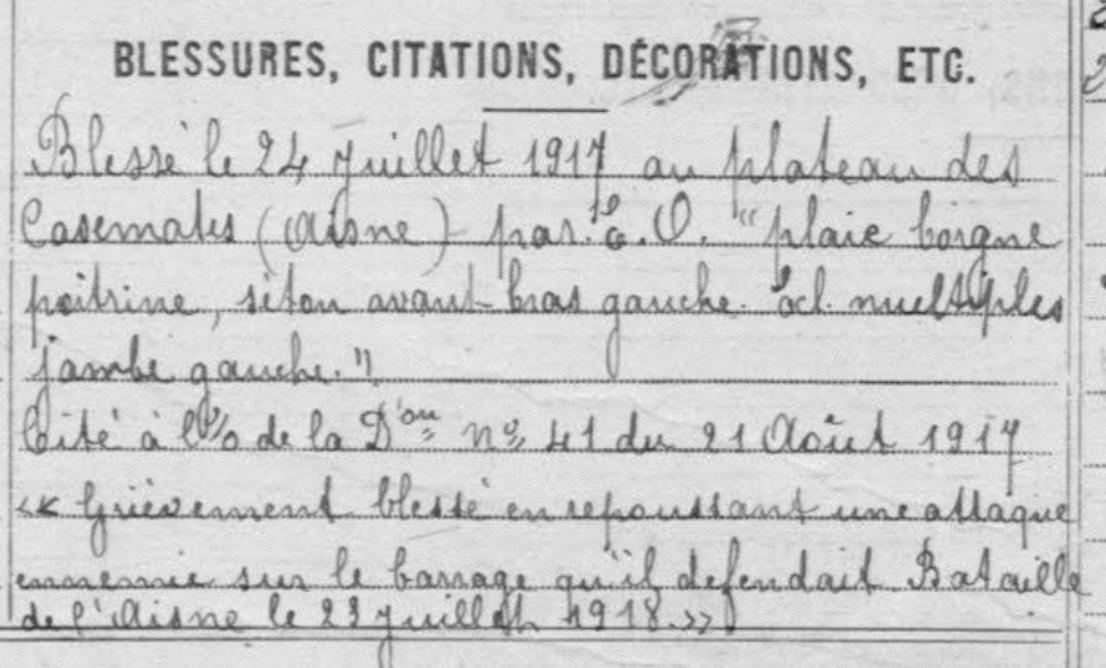 BLESSURES, CITATIONS, DÉCORATIONS, ETC.
Blessé le 24 juillet 1917 au plateau des
Casemates (Aisne) par E.O. "plaie borgne
poitrine, séton avant-bras gauche. écl. multiples
jambe gauche."
Cité à l'o/o de la Don no 41 du 21 Août 1917
« Grièvement blessé en repoussant une attaque
ennemie sur le barrage qu'il défendait Bataille
de l'Aisne le juillet 1918. »